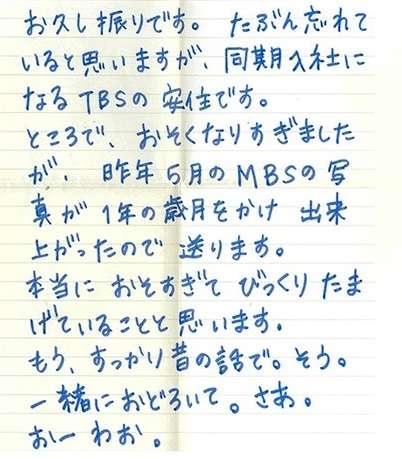 お久し振りです。 たぶん忘れて
いると思いますが、同期入社に
なるTBSの安住です。
ところで、おそくなりすぎました
が、昨年5月のMBSの写
真が1年の歳月をかけ 出来
上がったので 送ります。
本当に おそすぎて びっくり たま
げていることと思います.
もう、すっかり昔の話で。そう。
一緒におどろいて。さあ。
おーわお。